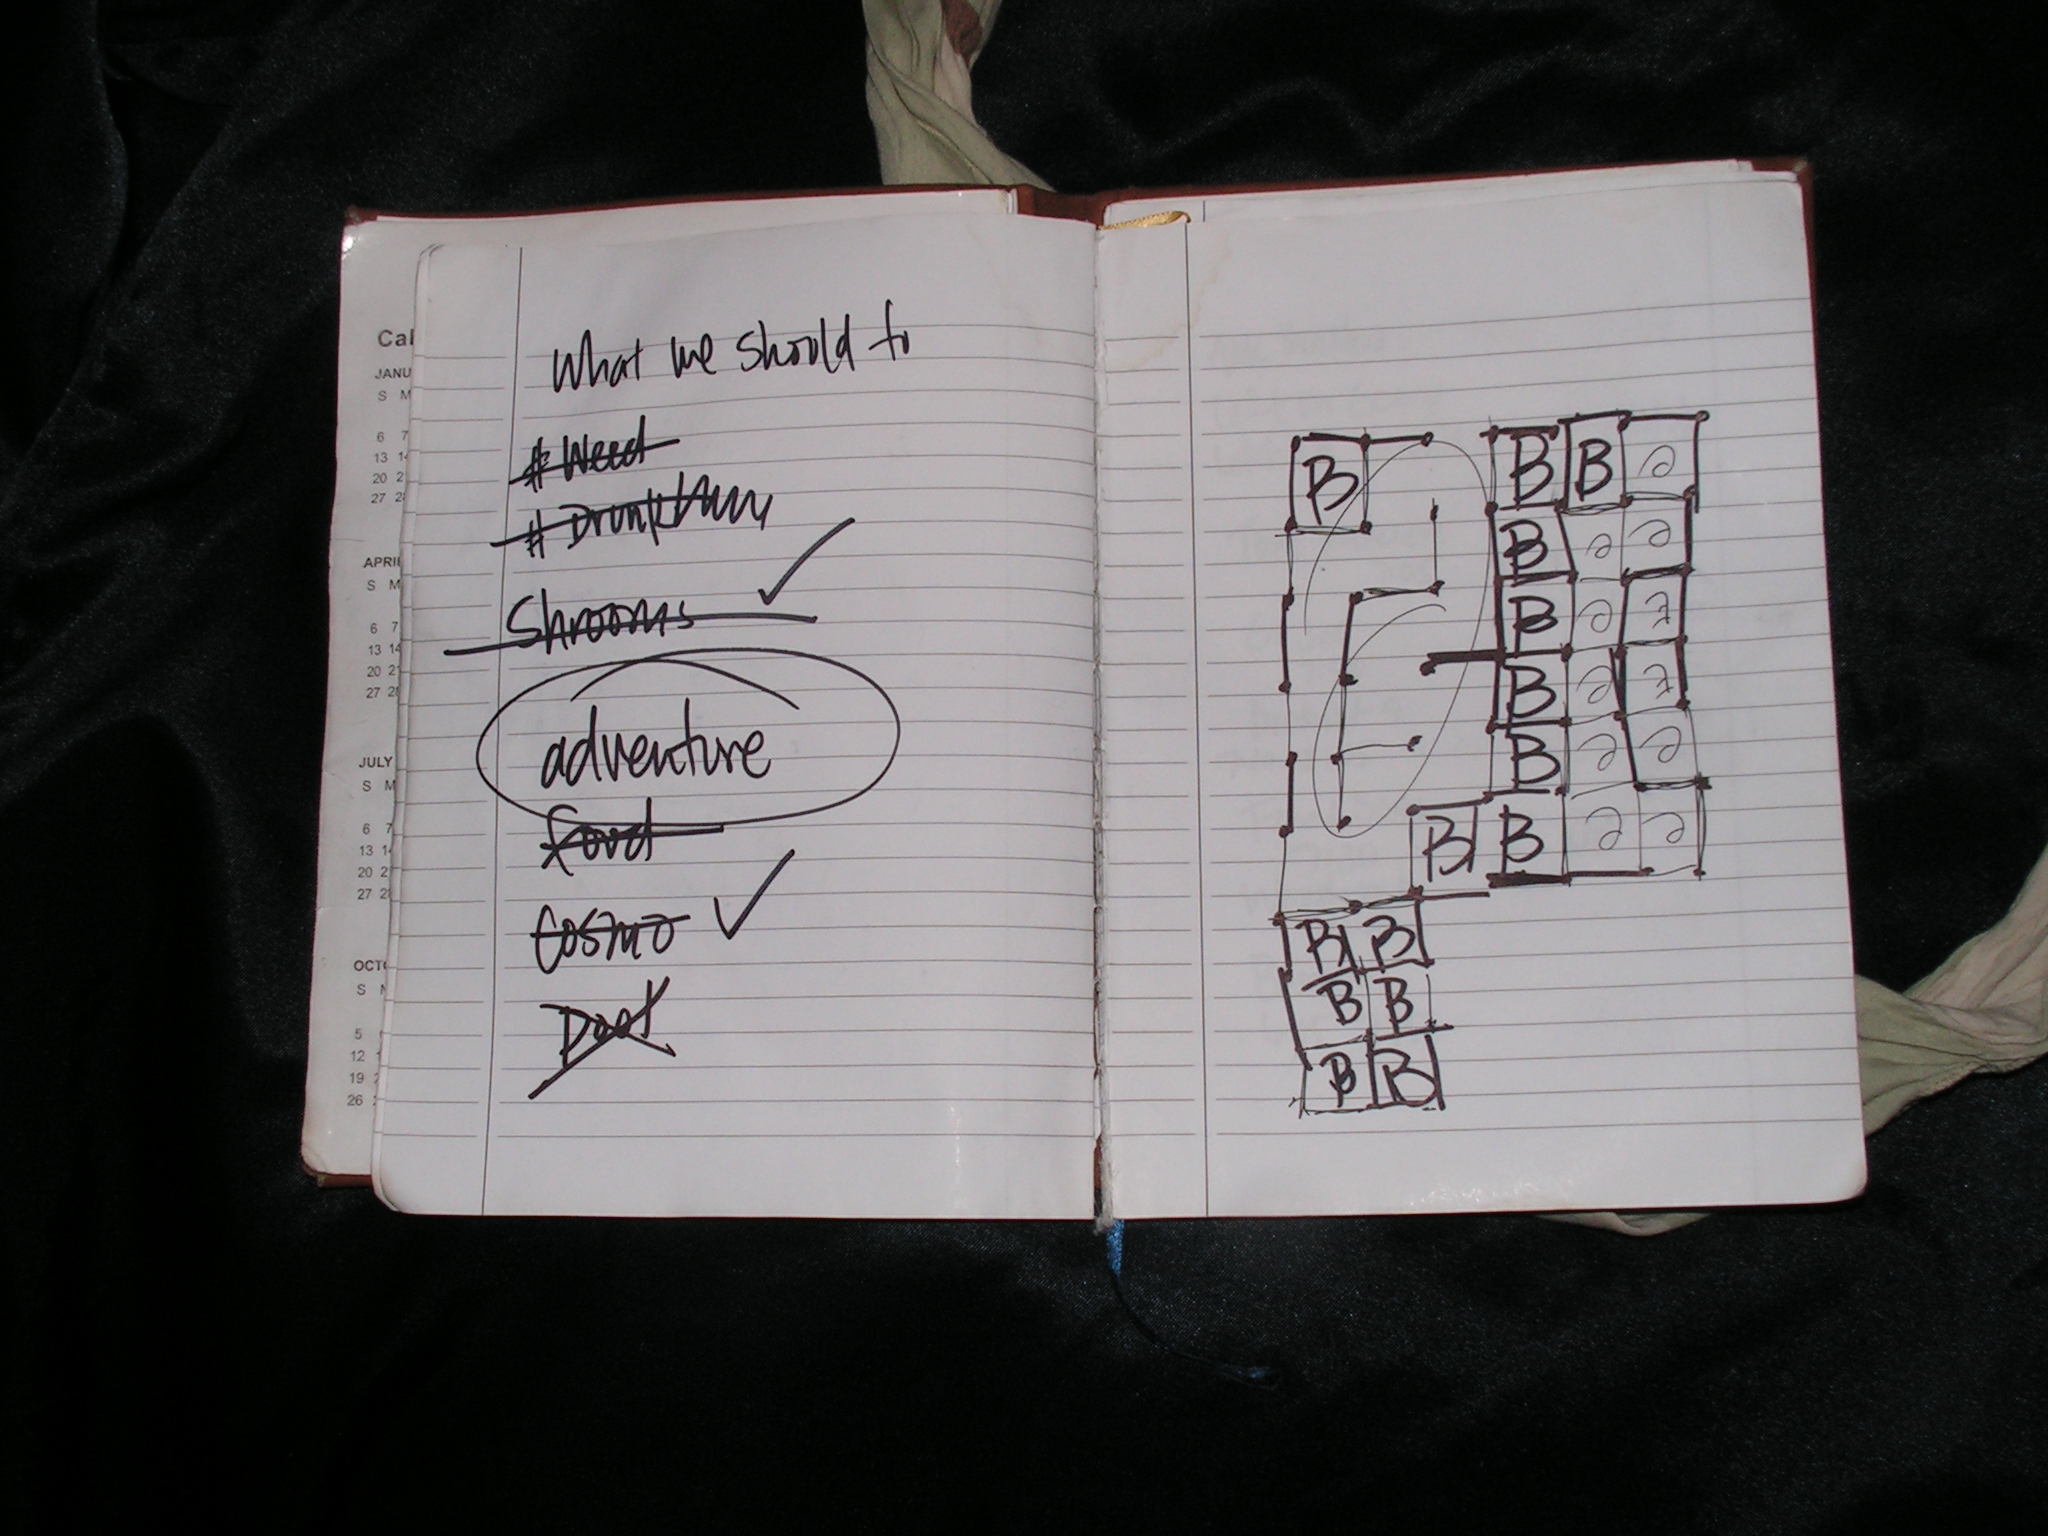 Cal
JANU
S M
6 7
13 14
20 2
27 28
APRI
S M
6 7
13 14
20 21
27 28
JULY
S M
6 7
13 14
20 2
27 28
OCTO
S M
5
12
19
26
What we should to
# Weed
# Drunk
Shrooms
adventure
food
Cosmo
B B B e
B e e
B e t
B e t
B e e
B B e e
B B
B B
B B